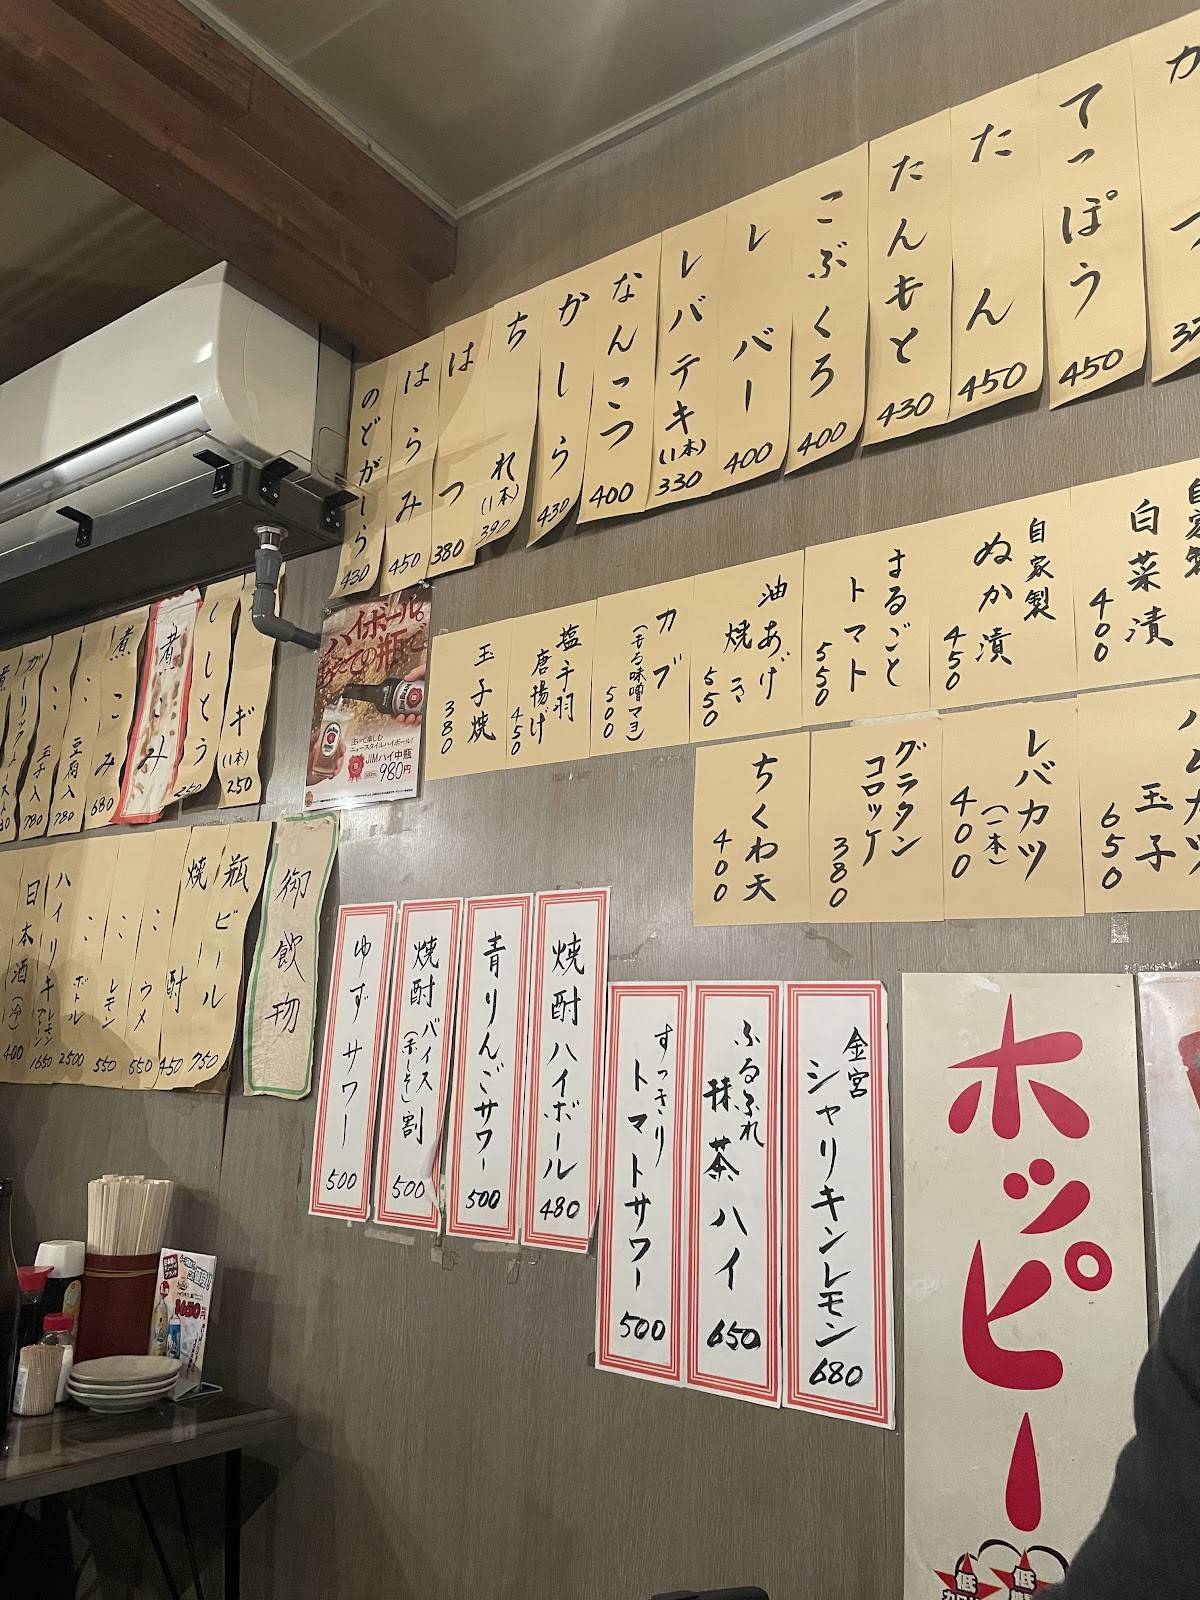 てっぽう 450
たん 450
たんもと 430
こぶくろ 400
レバー 400
レバテキ (1本) 330
なんこつ 400
かしら 430
ちれ (1本) 390
はつ 380
はらみ 450
のどがしら 430
自家製
白菜漬 400
自家製
ぬか漬 450
まるごと
トマト 550
油あげ
焼き 550
カブ
(もろ味噌マヨ) 500
塩手羽
唐揚げ 450
玉子焼 380
玉子 650
レバカツ
(一本) 400
グラタン
コロッケ 380
ちくわ天 400
ハイボール。
注いで楽しむ
ニュースタイルハイボール!
JIMハイ中瓶
980円
ギ (1本) 250
ししとう
煮こみ
煮こみ 680
〃 豆腐入 780
〃 玉子入 780
ガーリックトースト
御飲物
瓶ビール 750
焼酎 450
〃 ウメ 550
〃 レモン 550
〃 ボトル 2500
ハイリキ レモン 1650
日本酒 (冷) 400
金宮
シャリキンレモン 680
ふるふれ
抹茶ハイ 650
すっきり
トマトサワー 500
焼酎ハイボール 480
青りんごサワー 500
焼酎バイス(赤しそ)割 500
ゆずサワー 500
ホッピー
低
低